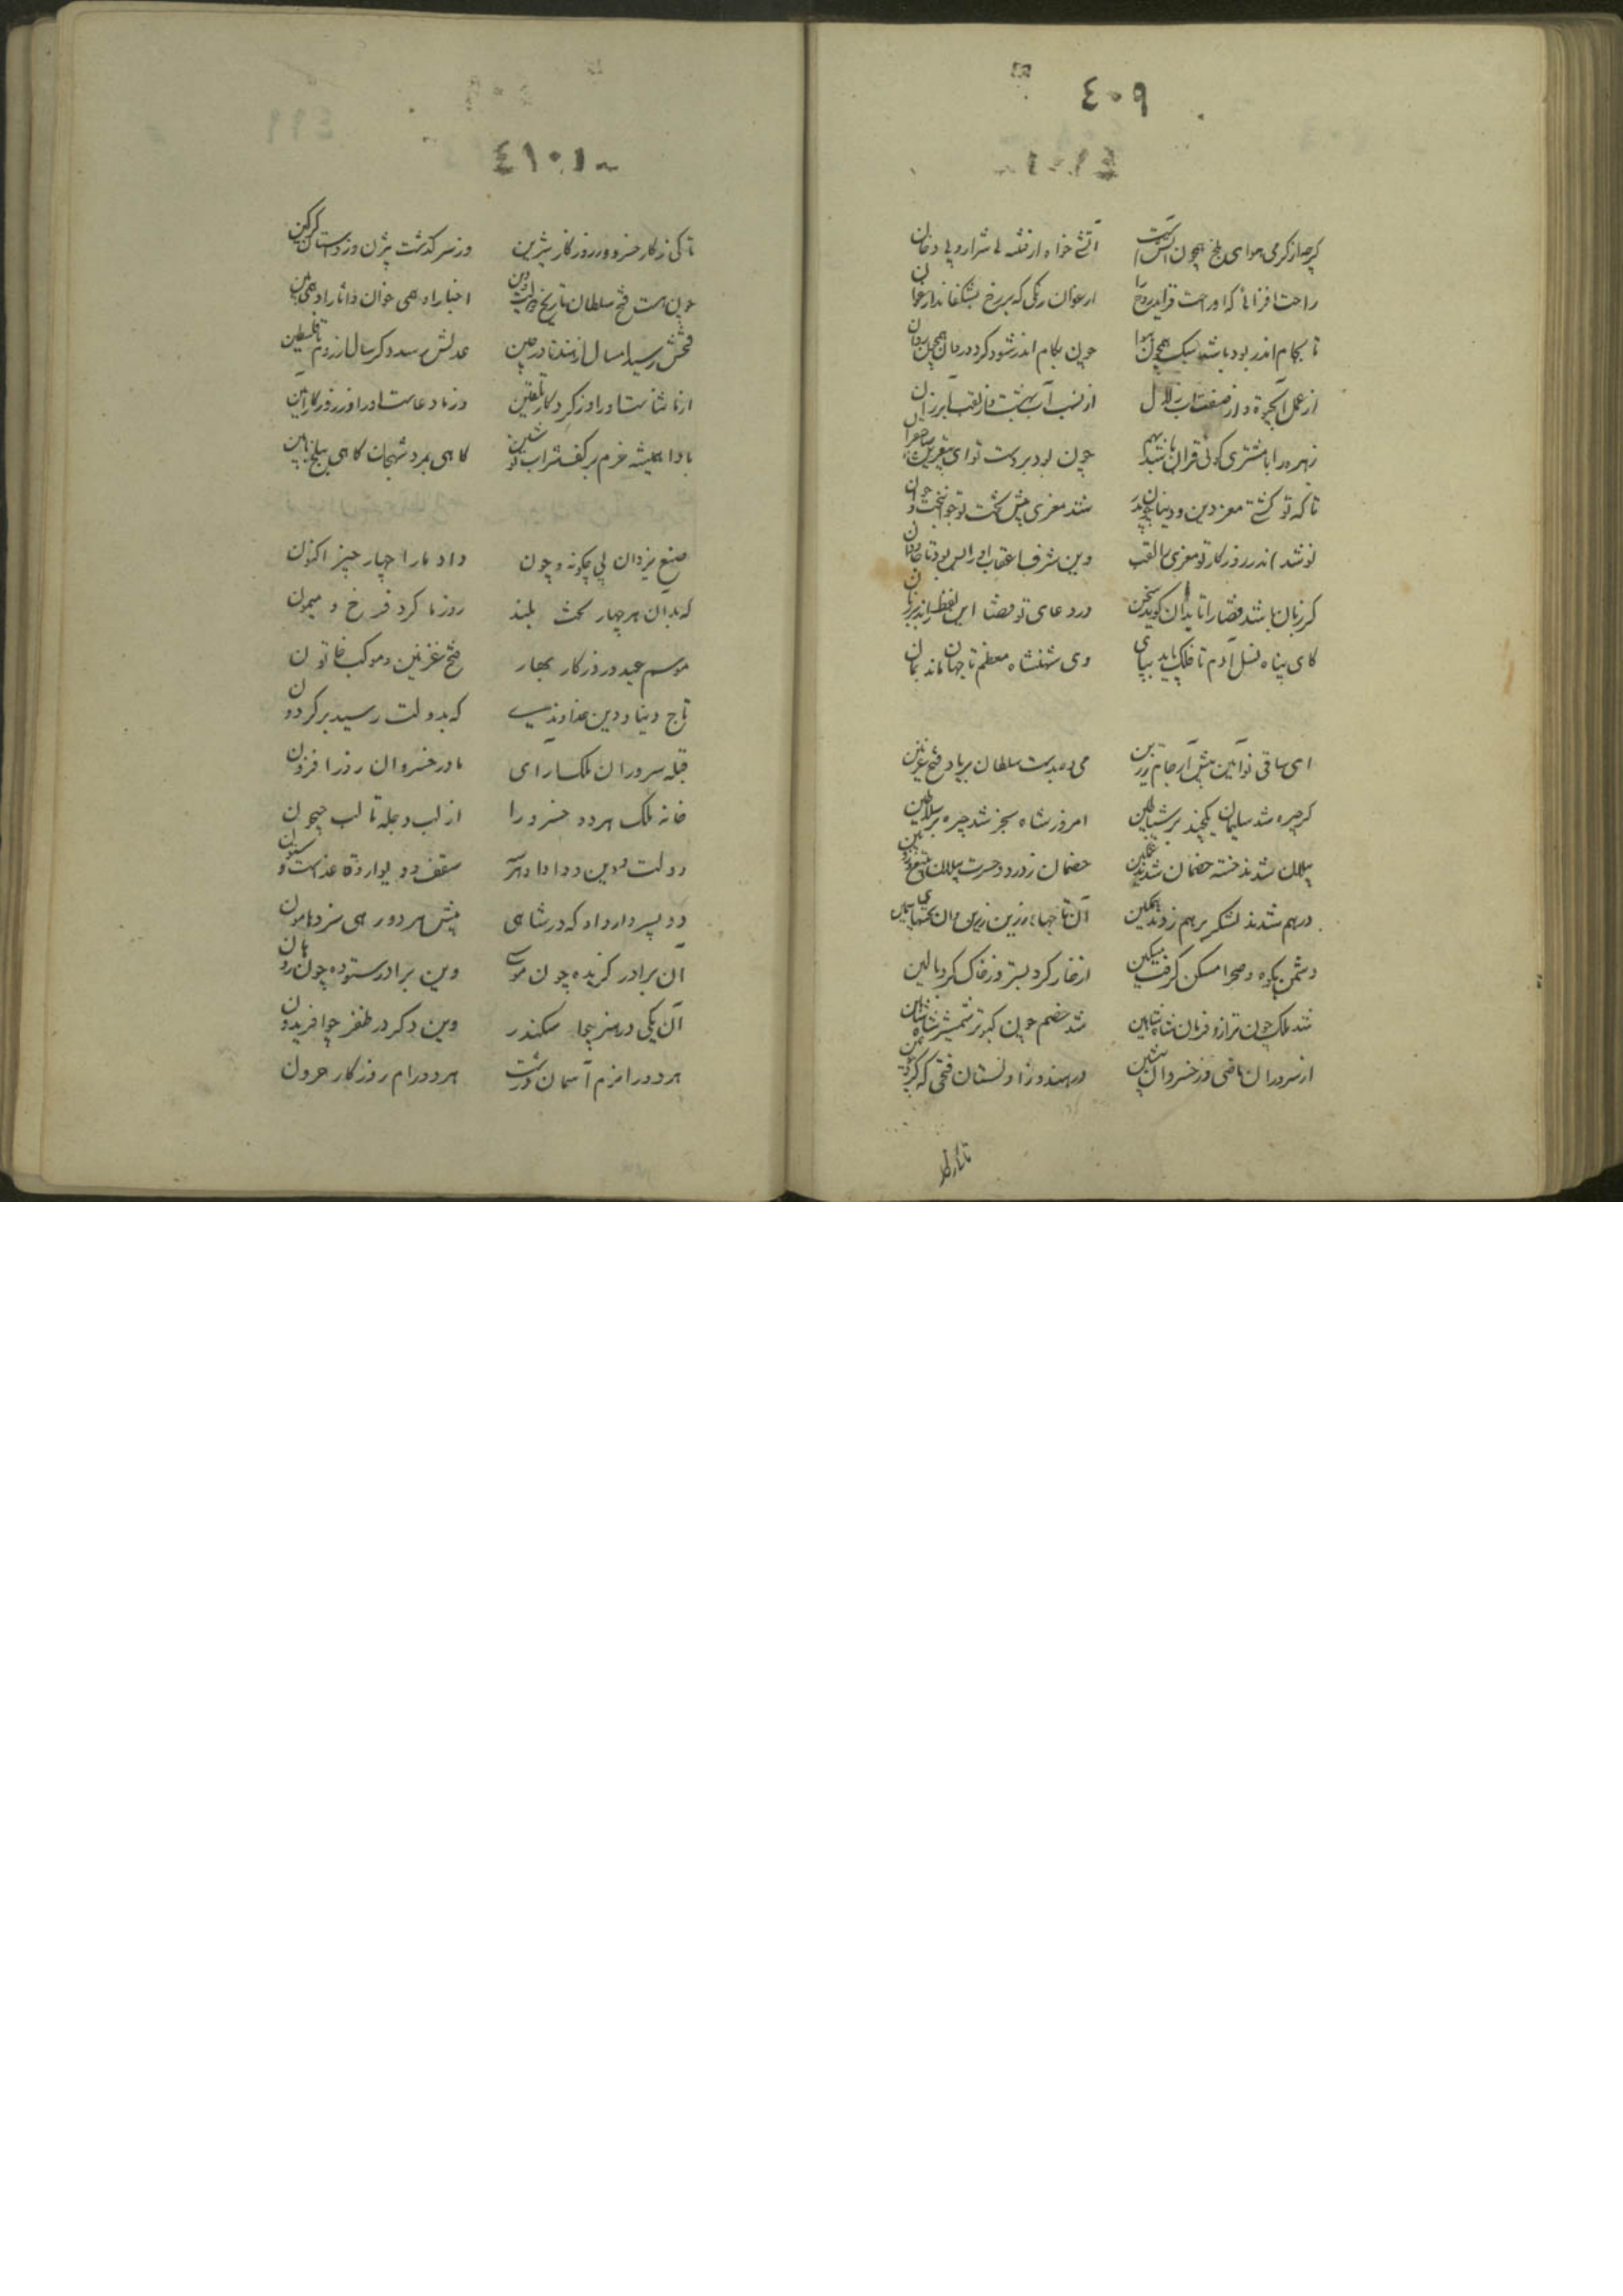 ٤٠٩
کرچه از کرمی هوای بلخ همچون آتش است آتشی خواه از فتنه بی شرار و بی دخان
راحت افزائی که او راحت فزاید روح را ارغوان رنگی که بر رخ بشکفاند ارغوان
تا بجام اندر بود باشد سبک همچون هوا چون بکام اندر شود کردد روان همچون روان
از عمل آب حیوة و از صفت آب زلال از نسب آب بهشت و از لقب آب رزان
زهره را با مشتری کوئی قران باشد بهم چون بود بر دست تو ای مشتری صاحبقران
تا که تو کشتی معز دین و دنیا از پدر شد معزی پیش تخت تو جوانبخت و جوان
نو شد اندر روزکار تو معزی را لقب وین شرف با عقاب او را بس بود تا جاودان
کر زبان باشد قضا را تا بدان کوید سخن در دعای تو قضا این لفظ راند بر زبان
کای پناه نسل آدم تا فلک پاید بپای وی شهنشاه معظم تا جهان ماند بمان
ای ساقی نوآیین پیش آر جام زرین می ده بدست سلطان بر یاد فتح غزنین
کر چیره شد سلیمان یکچند بر شیاطین امروز شاه سنجر شد چیره بر سلاطین
پیلان شدند خسته خصمان شدند غمکین خصمان ز درد و حسرت پیلان ز تیغ و زوبین
درهم شدند لشکر برهم زدند همکین آن تاجهای زرین وان تختهای سیمین
دشمن بکوه و صحرا مسکن کرفت مسکین از خار کرد بستر وز خاک کرد بالین
شد ملک چون ترازو فرمان شاه شاهین شد خصم چون کبوتر شمشیر شاه شاهین
از سروران ماضی وز خسروان پیشین در هند و زاولستان فتحی که کرد چونین
تا کی ز
٤١٠
تا کی ز کار خسرو و روزکار شیرین وز سرکذشت بیژن وز داستان کرکین
چون هست فتح سلطان تاریخ دولت و دین اخبار او همی خوان و آثار او همی بین
فتحش رسید امسال از هند تا در چین عدلش رسد دکر سال از روم تا فلسطین
از ما ثناست او را وز کردکار تلقین وز ما دعاست او را وز روزکار آمین
بادا همیشه خرم بر کف شراب نوشین کاهی بمرو شهجان کاهی ببلخ بامین
صنع یزدان بی چکونه و چون داد ما را چهار چیز اکنون
که بدان هر چهار بخت بلند روز ما کرد فرخ و میمون
موسم عید و روزکار بهار فتح غزنین و موکب خاتون
تاج دنیا و دین خداوندی که بدولت رسید بر کردون
قبله سروران ملک آرای مادر خسروان روز افزون
خانه ملک هر دو خسرو را از لب دجله تا لب جیحون
دولت و دین و داد او هر سه سقف و دیوار و قاعده است و ستون
دو پسر دارد او که در شاهی پیش هر دو رهی سزد مامون
آن برادر کزیده چون موسی وین برادر ستوده چون هارون
آن یکی در هنر بجای سکندر وین دکر در ظفر چو افریدون
هر دو را رام آسمان درشت هر دو را رام روزکار حرون